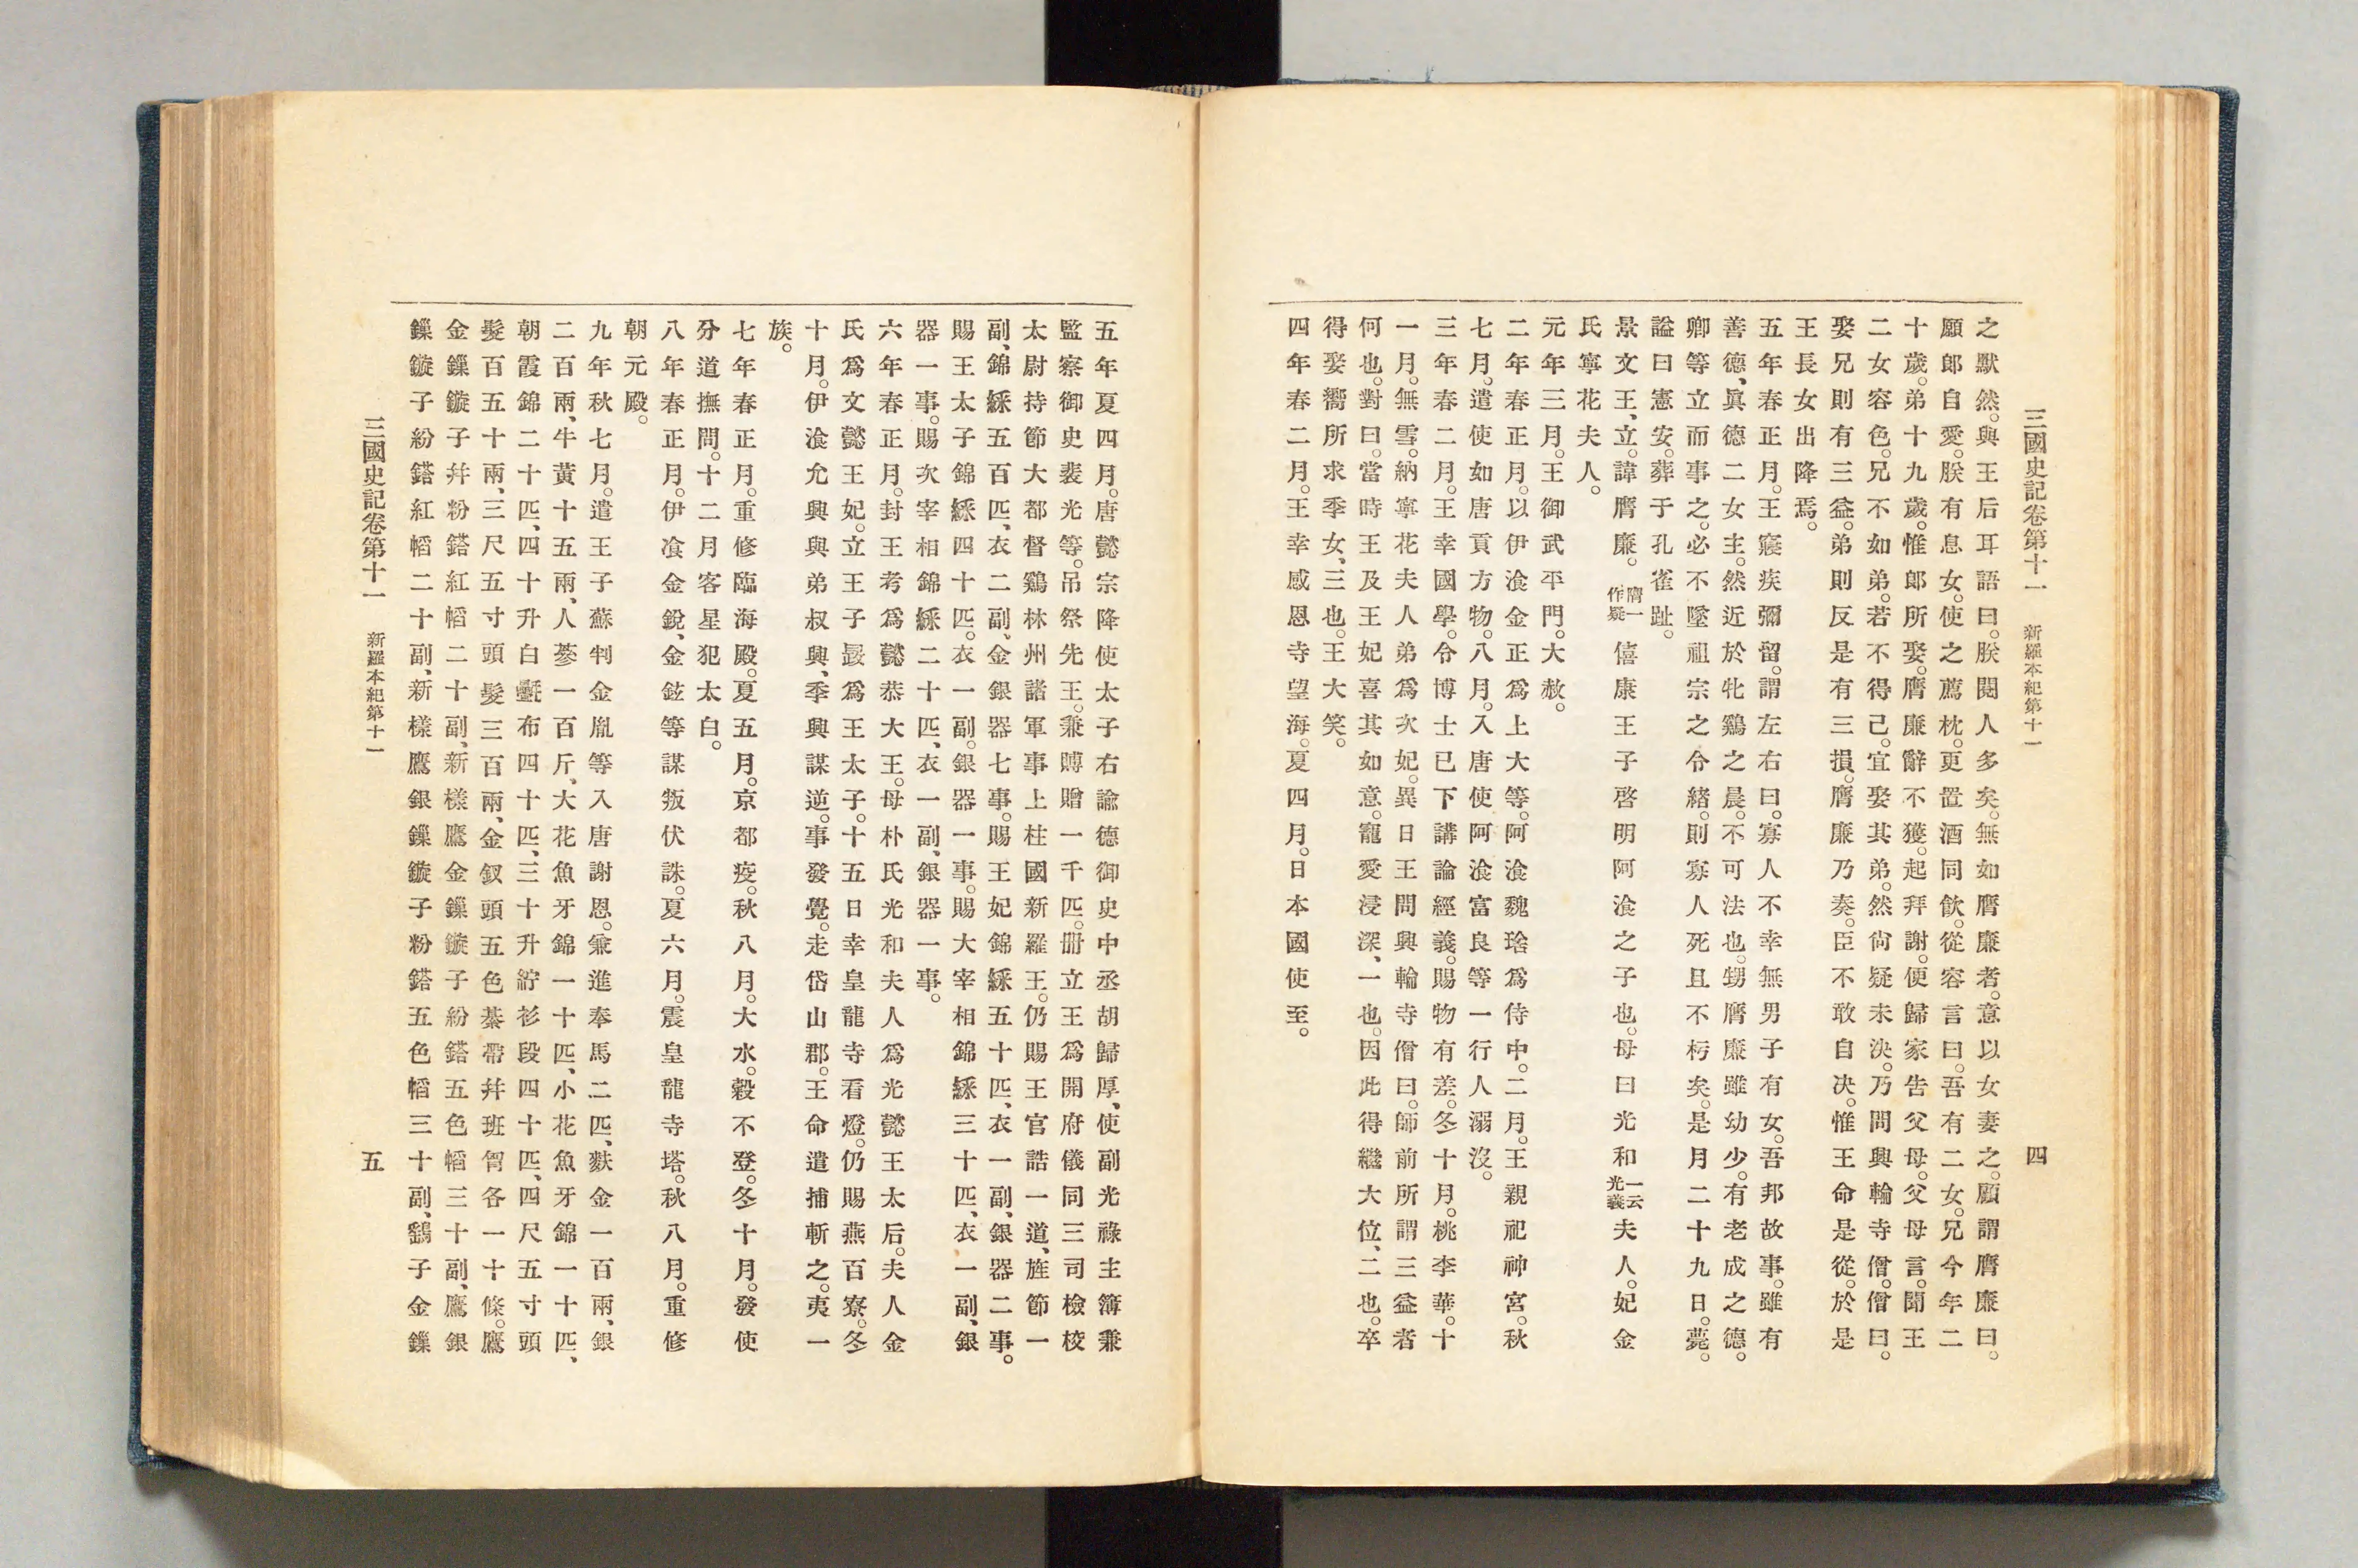 三國史記卷第十一　新羅本紀第十一　四
之默然。與王后耳語曰。朕閱人多矣。無如膺廉者。意以女妻之。顧謂膺廉曰。
願郎自愛。朕有息女。使之薦枕。更置酒同飮。從容言曰。吾有二女。兄今年二
十歲。弟十九歲。惟郎所娶。膺廉辭不獲。起拜謝。便歸家告父母。父母言。聞王
二女容色。兄不如弟。若不得已。宜娶其弟。然尙疑未決。乃問興輪寺僧。僧曰。
娶兄則有三益。弟則反是有三損。膺廉乃奏。臣不敢自決。惟王命是從。於是
王長女出降焉。
五年春正月。王寢疾彌留。謂左右曰。寡人不幸無男子有女。吾邦故事。雖有
善德、眞德二女主。然近於牝鷄之晨。不可法也。甥膺廉雖幼少。有老成之德。
卿等立而事之。必不墜祖宗之令緖。則寡人死且不朽矣。是月二十九日。薨。
謚曰憲安。葬于孔雀趾。
景文王、立。諱膺廉。膺一作疑僖康王子啓明阿飡之子也。母曰光和一云光義夫人。妃金
氏寧花夫人。
元年三月。王御武平門。大赦。
二年春正月。以伊飡金正爲上大等。阿飡魏珍爲侍中。二月。王親祀神宮。秋
七月。遣使如唐貢方物。八月。入唐使阿飡富良等一行人溺沒。
三年春二月。王幸國學。令博士已下講論經義。賜物有差。冬十月。桃李華。十
一月。無雪。納寧花夫人弟爲次妃。異日王問興輪寺僧曰。師前所謂三益者
何也。對曰。當時王及王妃喜其如意。寵愛浸深、一也。因此得繼大位、二也。卒
得娶嚮所求季女、三也。王大笑。
四年春二月。王幸感恩寺望海。夏四月。日本國使至。
五年夏四月。唐懿宗降使太子右諭德御史中丞胡歸厚、使副光祿主簿兼
監察御史裴光等。吊祭先王。兼賻贈一千匹。冊立王爲開府儀同三司檢校
太尉持節大都督鷄林州諸軍事上柱國新羅王。仍賜王官誥一道、旌節一
副、錦綵五百匹、衣二副、金銀器七事。賜王妃錦綵五十匹、衣一副、銀器二事。
賜王太子錦綵四十匹。衣一副。銀器一事。賜大宰相錦綵三十匹、衣一副、銀
器一事。賜次宰相錦綵二十匹、衣一副、銀器一事。
六年春正月。封王考爲懿恭大王。母朴氏光和夫人爲光懿王太后。夫人金
氏爲文懿王妃。立王子晸爲王太子。十五日幸皇龍寺看燈。仍賜燕百寮。冬
十月。伊飡允興與弟叔興、季興謀逆。事發覺。走岱山郡。王命遣捕斬之。夷一
族。
七年春正月。重修臨海殿。夏五月。京都疫。秋八月。大水。穀不登。冬十月。發使
分道撫問。十二月客星犯太白。
八年春正月。伊飡金銳、金鉉等謀叛伏誅。夏六月。震皇龍寺塔。秋八月。重修
朝元殿。
九年秋七月。遣王子蘇判金胤等入唐謝恩。兼進奉馬二匹、麩金一百兩、銀
二百兩、牛黃十五兩、人蔘一百斤、大花魚牙錦一十匹、小花魚牙錦一十匹、
朝霞錦二十匹、四十升白㲲布四十匹、三十升紵衫段四十匹、四尺五寸頭
髮百五十兩、三尺五寸頭髮三百兩、金釵頭五色綦帶幷班胷各一十條。鷹
金鏁鏇子幷紛鍣紅幍二十副、新樣鷹金鏁鏇子紛鍣五色幍三十副、鷹銀
鏁鏇子紛鍣紅幍二十副、新樣鷹銀鏁鏇子粉鍣五色幍三十副、鷂子金鏁
三國史記卷第十一　新羅本紀第十一　五